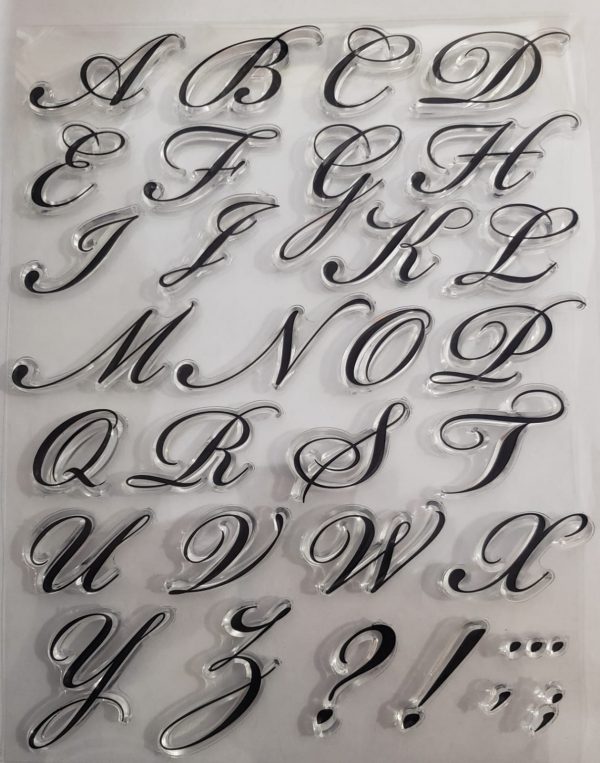 A B C D
E F G H
I J K L
M N O P
Q R S T
U V W X
Y Z ? ! ...